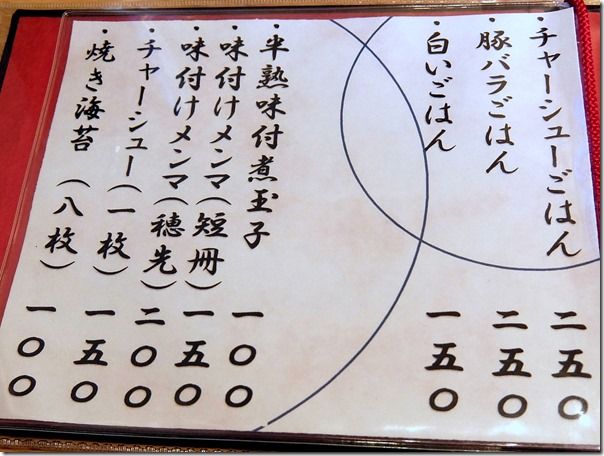 ・チャーシューごはん 二五〇
・豚バラごはん 二五〇
・白いごはん 一五〇
・半熟味付煮玉子 一〇〇
・味付けメンマ(短冊) 一五〇
・味付けメンマ(穂先) 二〇〇
・チャーシュー(一枚) 一五〇
・焼き海苔(八枚) 一〇〇